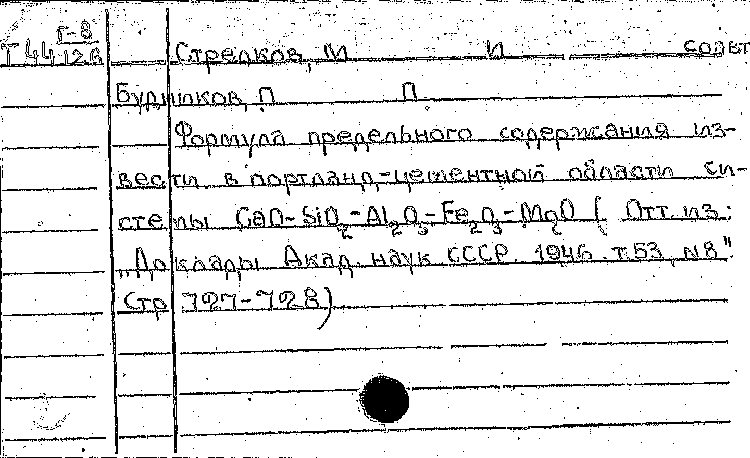 Г-8
Т 44 12 в
Стрелков, М И соавт
Будников, П П
Формула предельного содержания из-
вести в портланд-цементной области си-
стемы CaO-SiO2-Al2O3-Fe2O3-MgO ( Отт. из:
„Доклады Акад. наук СССР. 1946. т.53, №8".
Стр 727-728)